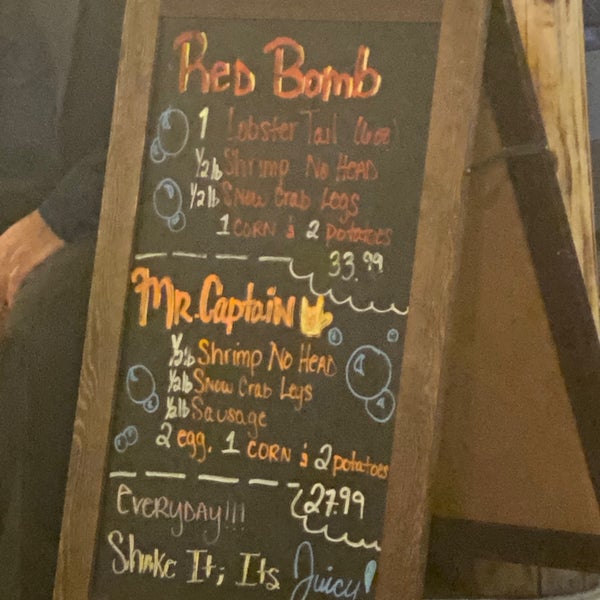 Red Bomb
1 Lobster Tail (6oz)
1/2 lb Shrimp No Head
1/2 lb Snow Crab Legs
1 corn & 2 potatoes
33.99
Mr. Captain
1/2 lb Shrimp No Head
1/2 lb Snow Crab Legs
1/2 lb Sausage
2 egg, 1 corn & 2 potatoes
27.99
Everyday!!!
Shake It; Its Juicy!